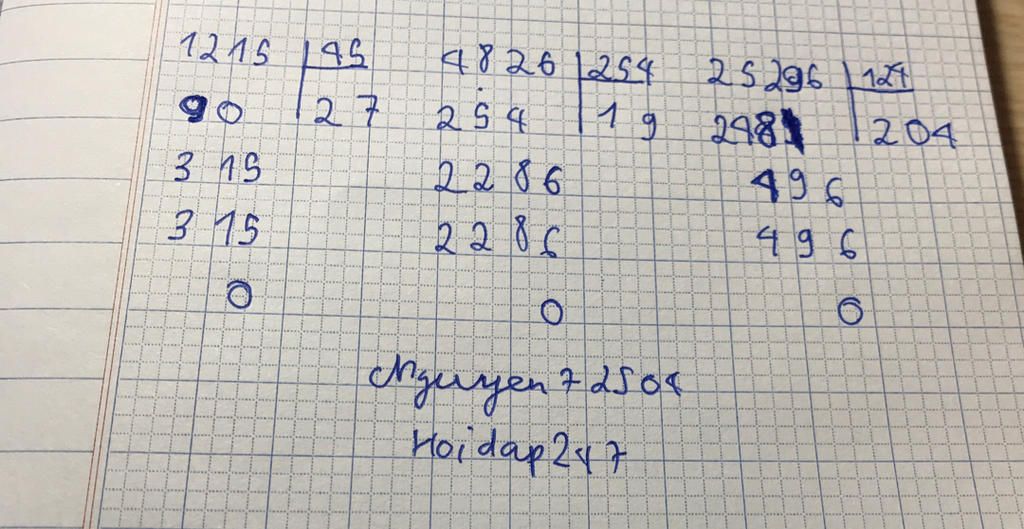 1215 45 4826 254 25296 124
90 27 254 19 248 204
315 2286 496
315 2286 496
0 0 0
Nguyen72504
Hoidap247